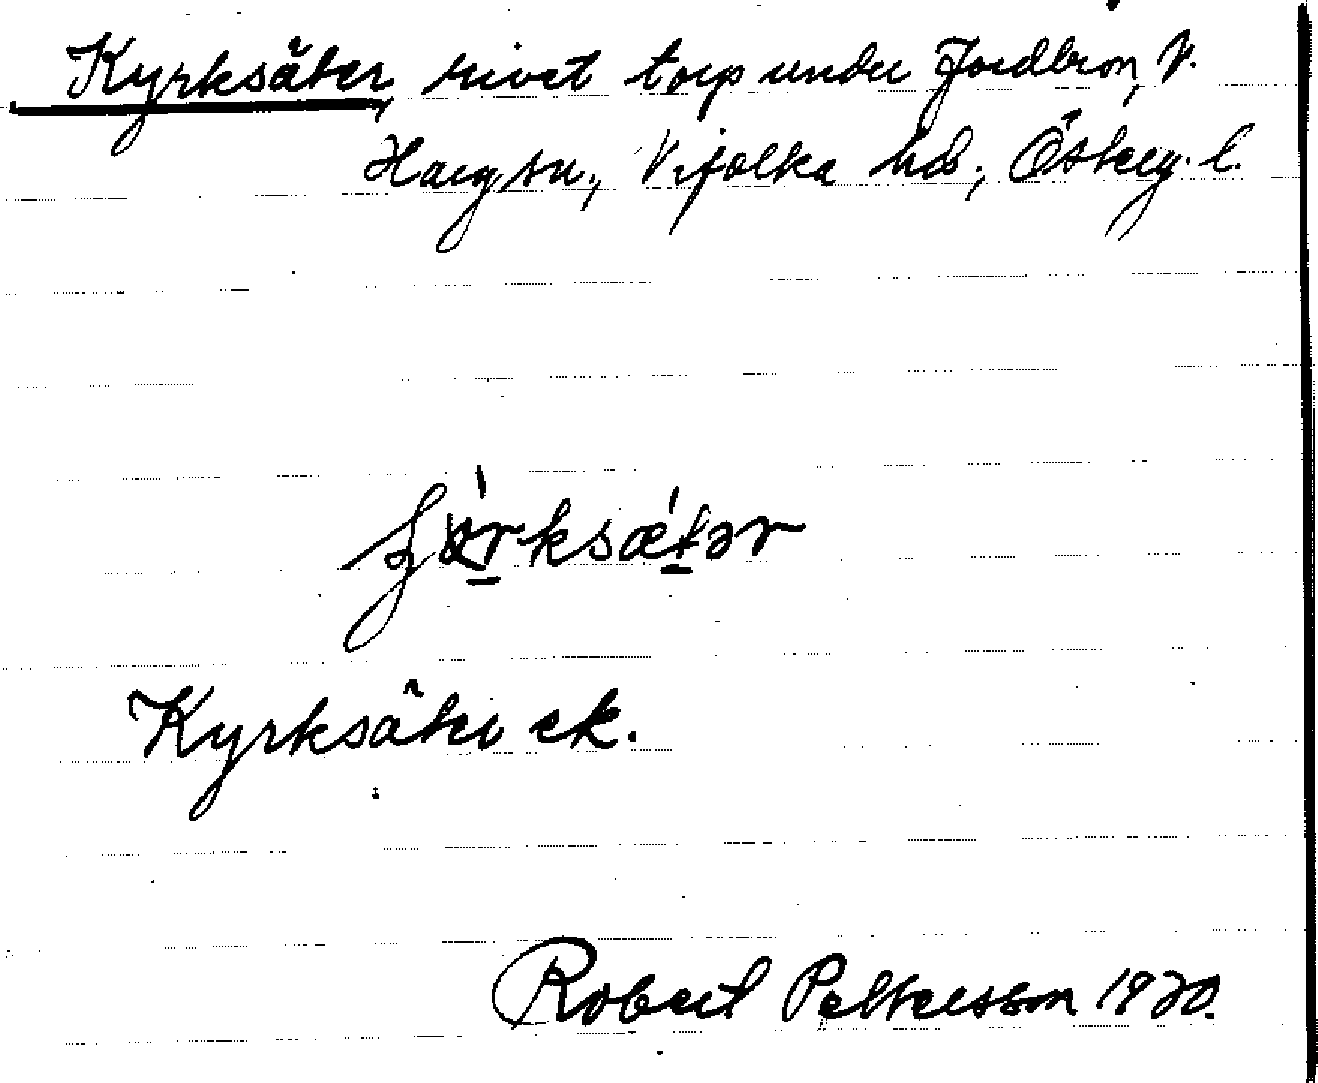 Kyrksäter, rivet torp under Jordbron, V.
Harg sn., Vifolka hd., Österg. l.
Kyrksäter ek.
Robert Pettersson 1920.